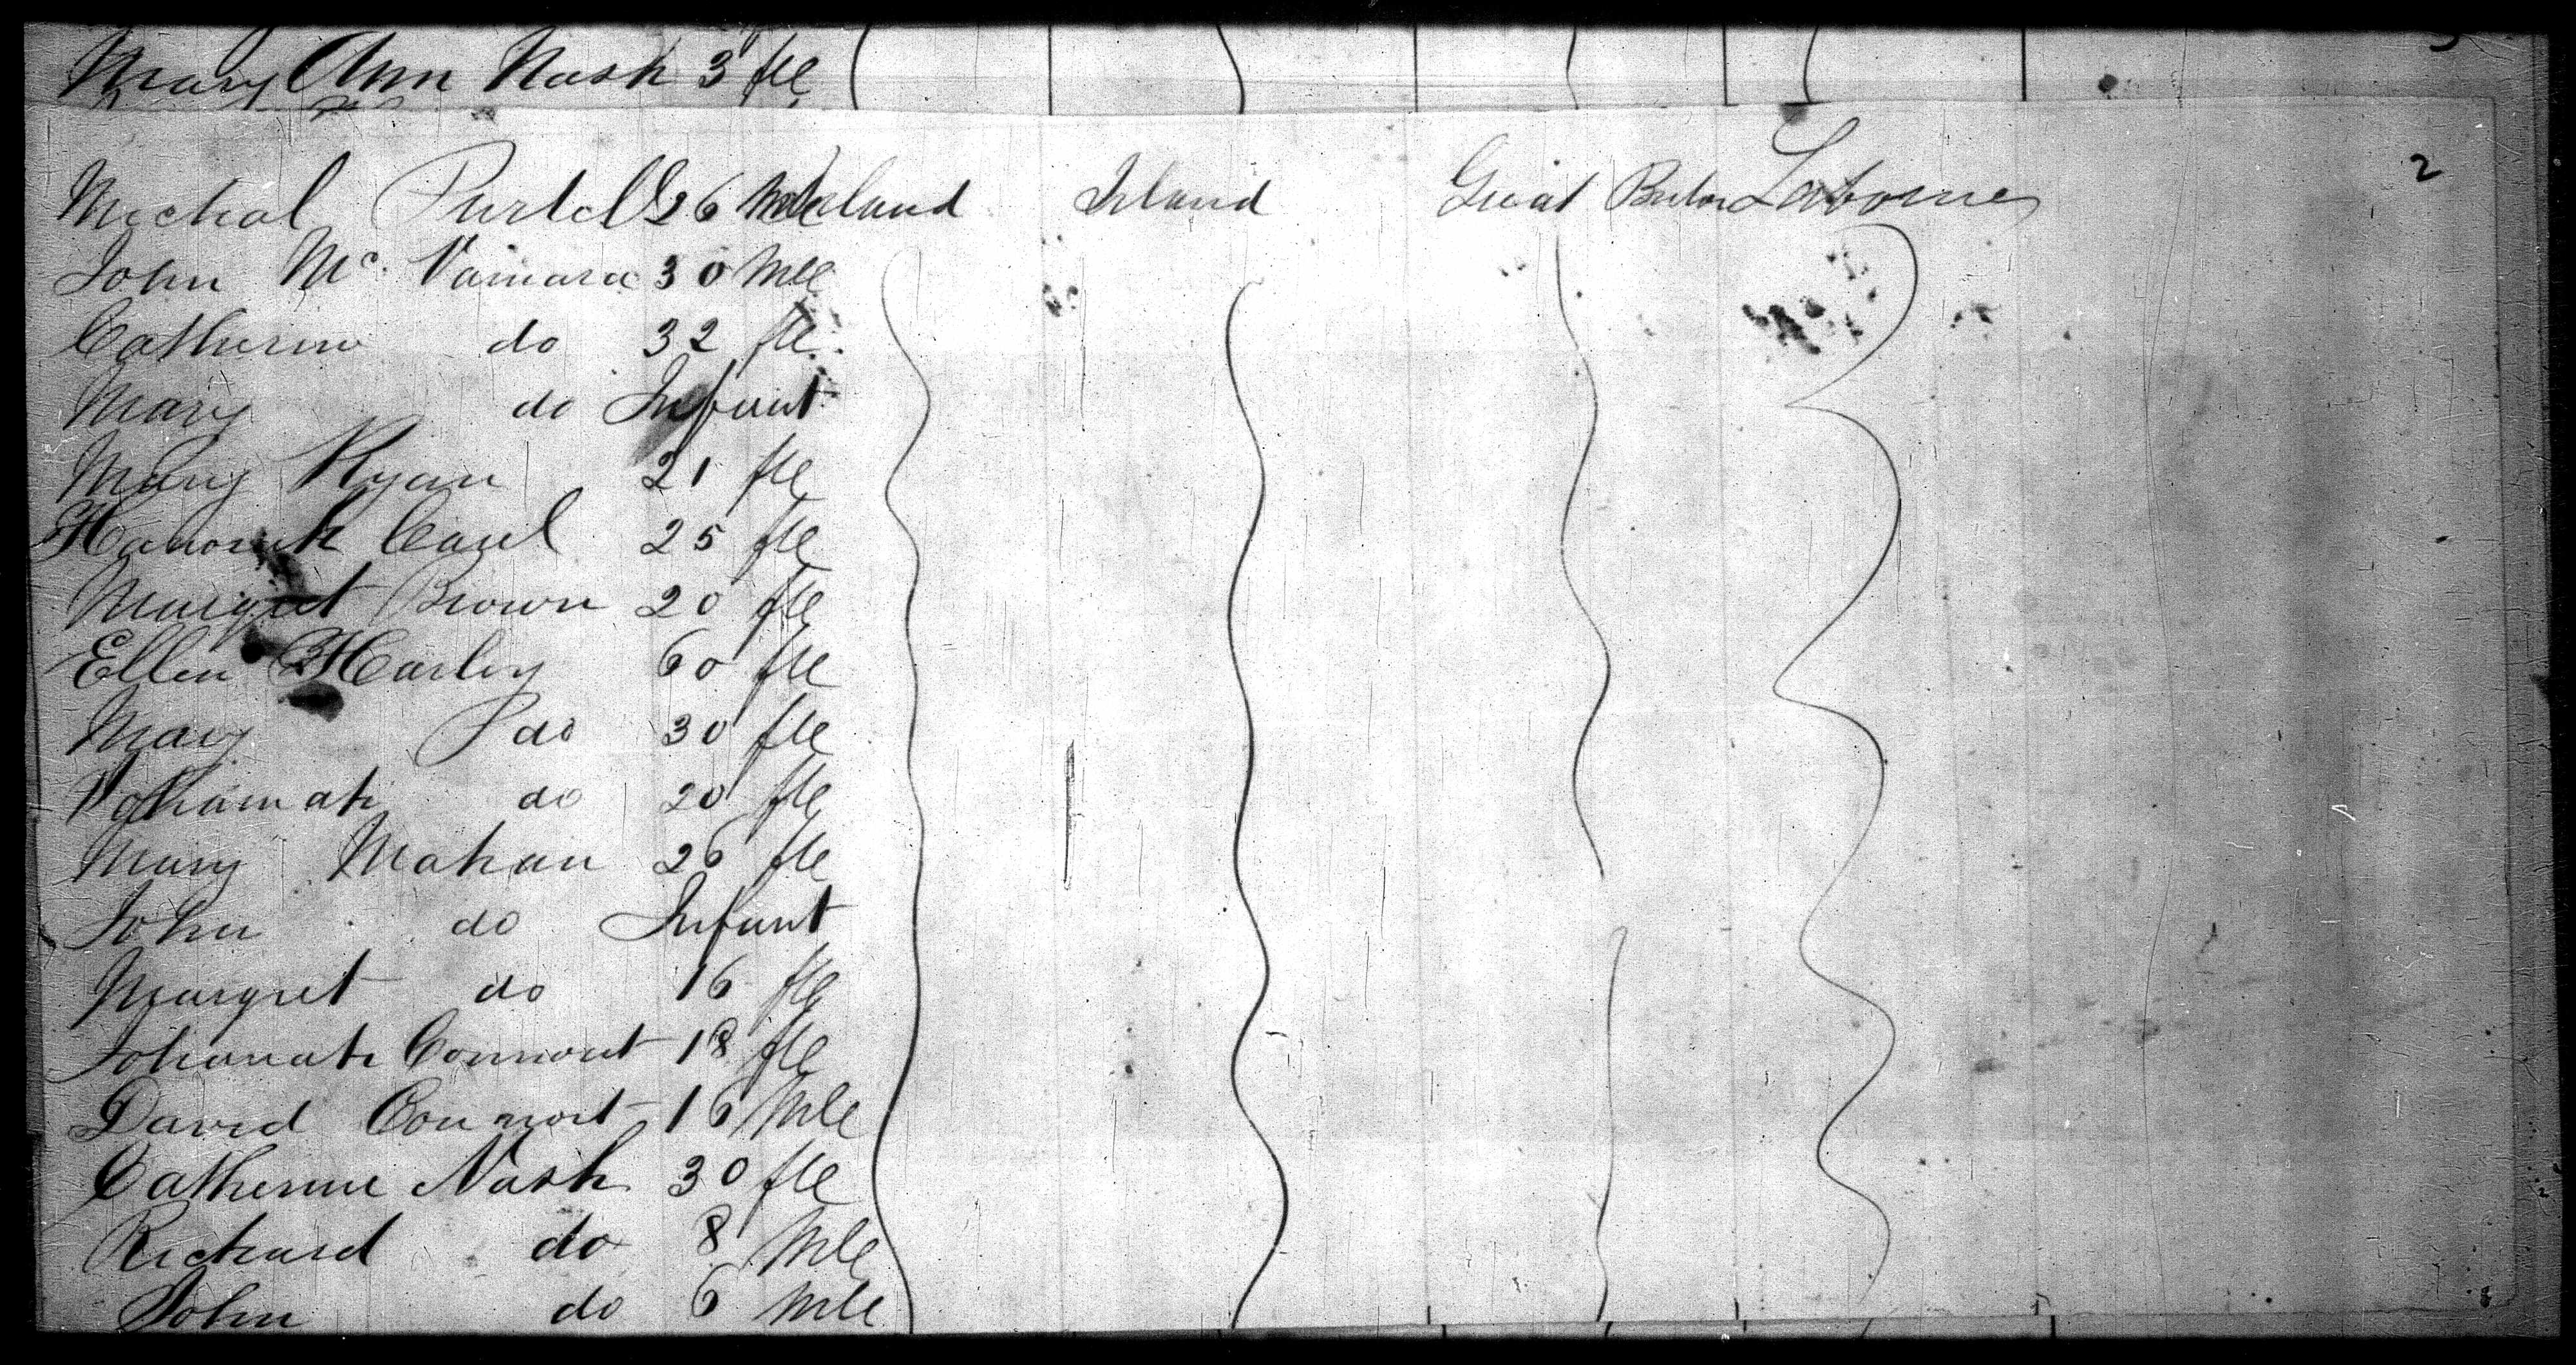 Mary Ann Nash 3 fle
2
Micheal Purtell 26 Mle Ireland Irland Great Briton Labourer
John Mc. Namara 30 Mle
Catherine do 32 fle
Mary do Infant
Mary Ryan 21 fle
Hanorah Carel 25 fle
Margret Brown 20 fle
Ellen Harley 60 fle
Mary do 30 fle
Johanah do 20 fle
Mary Mahan 26 fle
John do Infant
Margret do 16 fle
Johanah Connort 18 fle
David Connort 16 Mle
Catherine Nash 30 fle
Richard do 8 Mle
John do 6 Mle